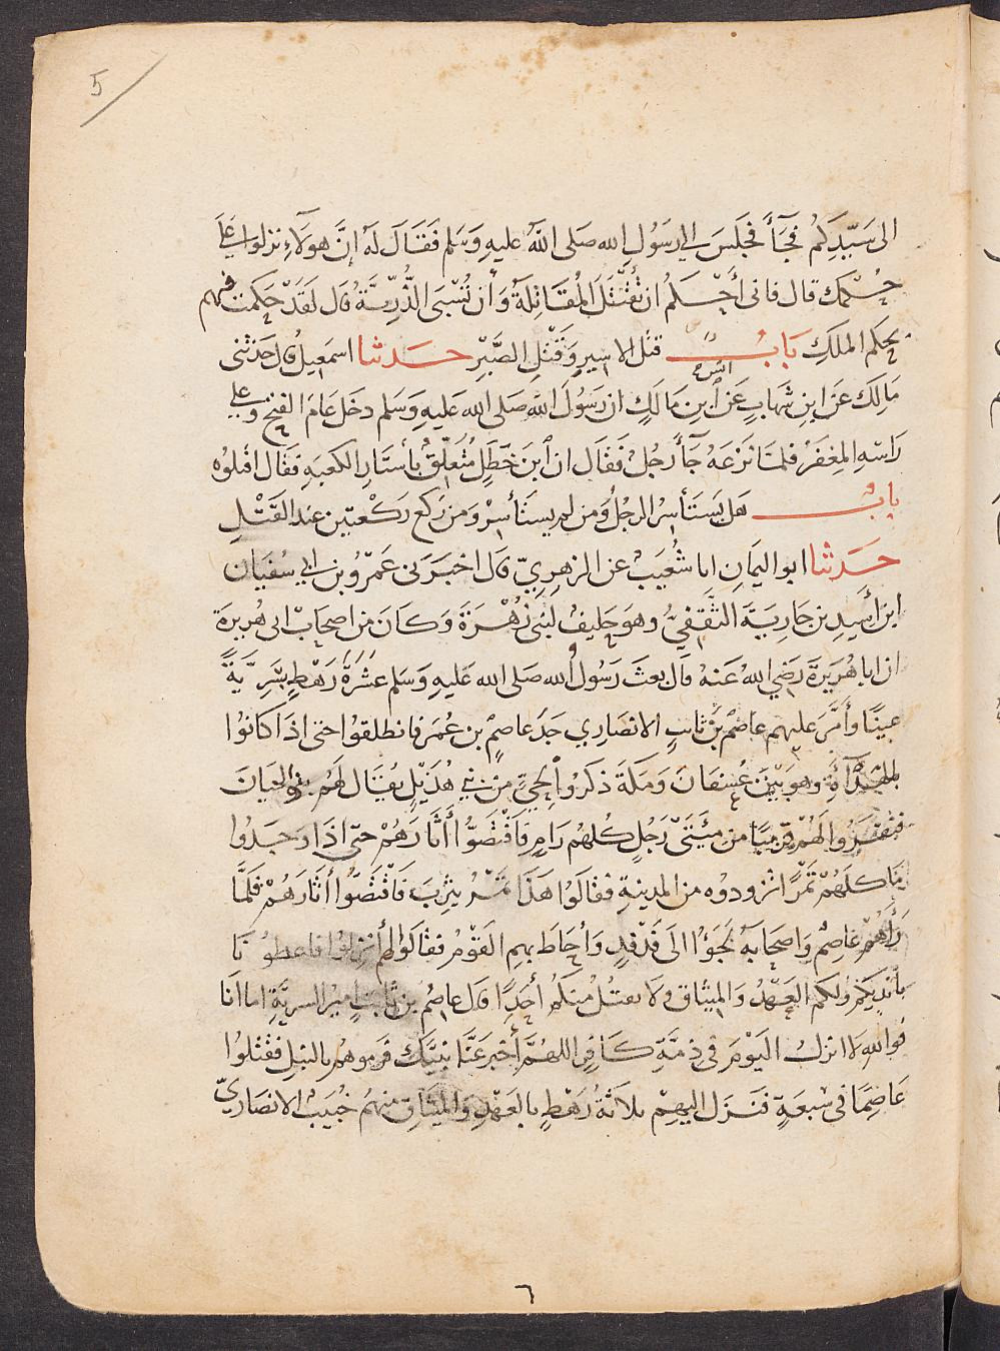 5
الى سَيّدِكم فجَآءَ فجَلسَ الى رَسُولِ الله صَلى اللهُ عليهِ وَسَلم فَقَالَ لهُ إنَّ هولآءِ نزلوا على
حُكمك قال فانى أحْكمُ ان تُقْتَلَ المُقَاتِلةُ وَأن تُسْبَى الذُّرِّيَّةُ قال لَقَدْ حَكمت فيهم
بحكم الملَكِ بَابُ قتلِ الاسِيرِ وَقَتْلِ الصَّبْرِ حَدثنا اسمعِيلُ قال حَدثنى
مَالِك عَن ابن شهَابٍ عَن أنس بن مَالكٍ ان رَسُولَ اللهِ صَلى الله عَليهِ وَسَلم دخَل عَامَ الفتح وعلى
رَاسِهِ المِغفَرُ فلمَّا نَزَعَهُ جَآءَ رَجُلٌ فَقَال ان ابنَ خَطَلٍ مُتَعلّقٌ بأستَارِ الكعبَةِ فقَال اقتلوُه
بابُ هَل يَستَأسِرُ الرجُلُ وَمن لم يستَأسِرْ وَمن رَكَع رَكْعتين عند القَتْلِ
حَدَثنا ابو اليَمانِ انا شُعَيبٌ عن الزهرِيِّ قال اخبَرَنى عَمْرُو بن ابى سفيَان
ابن أَسِيدِ بن جَارِيَةَ الثَّقَفيُّ وهوَ حَليفٌ لبَنى زُهْرَةَ وَكَانَ مِن اصحَابِ ابى هُريرَة
ان ابا هُرَيرَةَ رَضِي اللهُ عَنهُ قال بَعثَ رَسُول الله صَلى الله عَليهِ وَسَلم عَشَرَةَ رَهْطٍ سَرِيَّةً
عينًا وأَمَّرَ عليهم عاصِمَ بنَ ثابتٍ الانصَارِي جَدَّ عاصِمِ بن عُمَرَ فانطلقوا حتى اذَا كانوُا
بالهَدْأةِ وهو بَيْنَ عُسفَانَ وَمكَةَ ذكرُوا لحيٍّ من بني هُذَيْلٍ يُقَال لهَم بنو لحيَانَ
فنَفَرُوا لَهُمْ قرِيبًا من مِئَتَىْ رَجُلٍ كلهُم رَامٍ فَاقْتَصُّوا أثَارَهُمْ حَتى اذَا وَجَدُوا
مَاكلَهُمْ تَمْرًا تزودوُه من المدينةِ فقَالوُا هَذَا تمْرُ يثرِبَ فَاقْتَصُّوا أثَارَهُمْ فلمَّا
رَآهُمْ عَاصِمٌ وَاصحَابُه لجَؤُا الَى فَدْفَدٍ وَأحَاط بهِم القَوْمُ فقَالوُا لهم أنزِلوُا فاعطوُنَا
بأيدِيكمْ ولكم العَهْدُ وَالميثاق وَلا نقتُلُ مِنكمُ أحَدًا قال عاصِمُ بن ثابتٍ اميرُ السرِيَّةِ اما انَا
فوَاللهِ لا انزلُ اليَوْمَ فى ذمَّةِ كَافِرٍ اللهُمَّ أخبر عَنَّا نبيَّكَ فرموهُم بالنبلِ فقتلوُا
عَاصِمًا فى سَبعَةٍ فنزَلَ اليهِمْ ثلاثَةُ رَهْطٍ بالعَهْدِ وَالميثَاقِ منهُمْ خُبَيْبٌ الانصَارِيُّ
٦